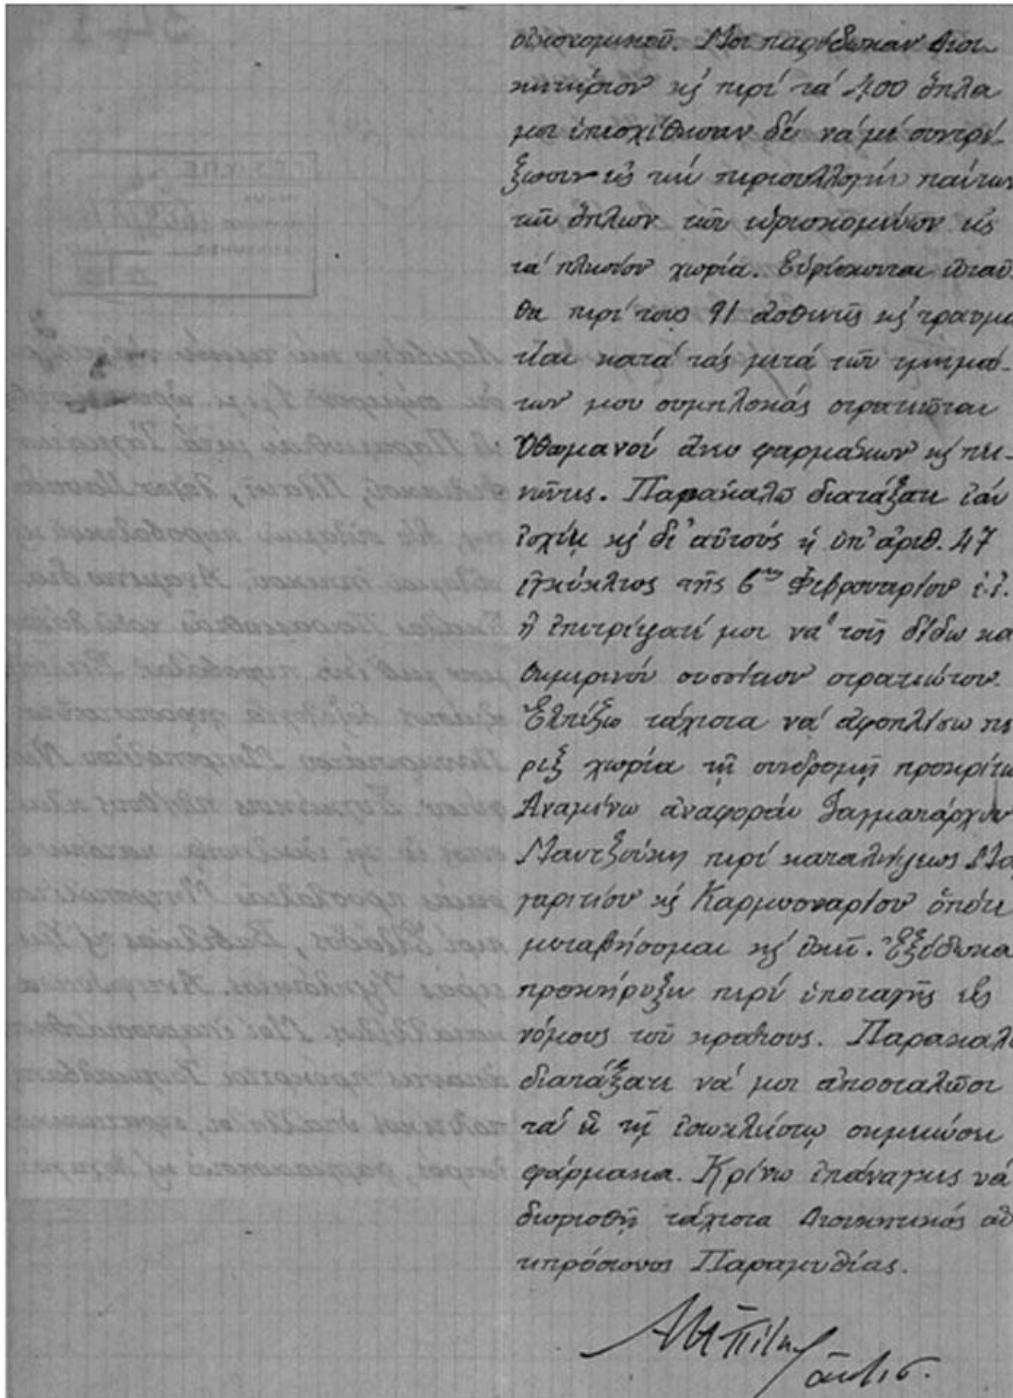 οἰκονομικοῦ. Μοι παρέδωκαν Διοι-
κητήριον κς περί τά 400 ὅπλα
μοι ὑπεσχέθησαν δέ νά μέ συντρέ-
ξωσιν εἰς τήν περισυλλογήν πάντων
τῶν ὅπλων τῶν εὑρισκομένων εἰς
τά πλησίον χωρία. Εὑρίσκονται ἐνταῦ-
θα περί τούς 91 ἀσθενεῖς κς τραυμα
τίαι κατά τάς μετά τῶν τμημά-
των μου συμπλοκάς στρατιῶται
Ὀθωμανοί ἄνευ φαρμάκων κς πει-
νῶντες. Παρακαλῶ διατάξατε ἐάν
ἰσχύῃ κς δι' αὐτούς ἡ ὑπ' ἀριθ. 47
ἐγκύκλιος τῆς 6ης Φεβρουαρίου ἐ.ἔ.
ἤ ἐπιτρέψατέ μοι νά τοῖς δίδω κα
θημερινόν συσσίτιον στρατιώτου.
Ἐλπίζω τάχιστα νά ἀφοπλίσω πε
ριξ χωρία τῇ συνδρομῇ προκρίτω
Ἀναμένω ἀναφοράν Ταγματάρχου
Μαντζούκη περί καταλήψεως Μα
γαριτίου κς Καρβουναρίου ὁπότε
μεταβήσομαι κς ἐκεῖ. Ἐξέδωκα
προκήρυξιν περί ὑποταγῆς εἰς
νόμους τοῦ κράτους. Παρακαλ
διατάξατε νά μοι ἀποσταλῶσι
τά ἐν τῇ ἐσωκλείστῳ σημειώσει
φάρμακα. Κρίνω ἐπάναγκες νά
διορισθῇ τάχιστα Διοικητικός ἀν
τιπρόσωπος Παραμυθίας.